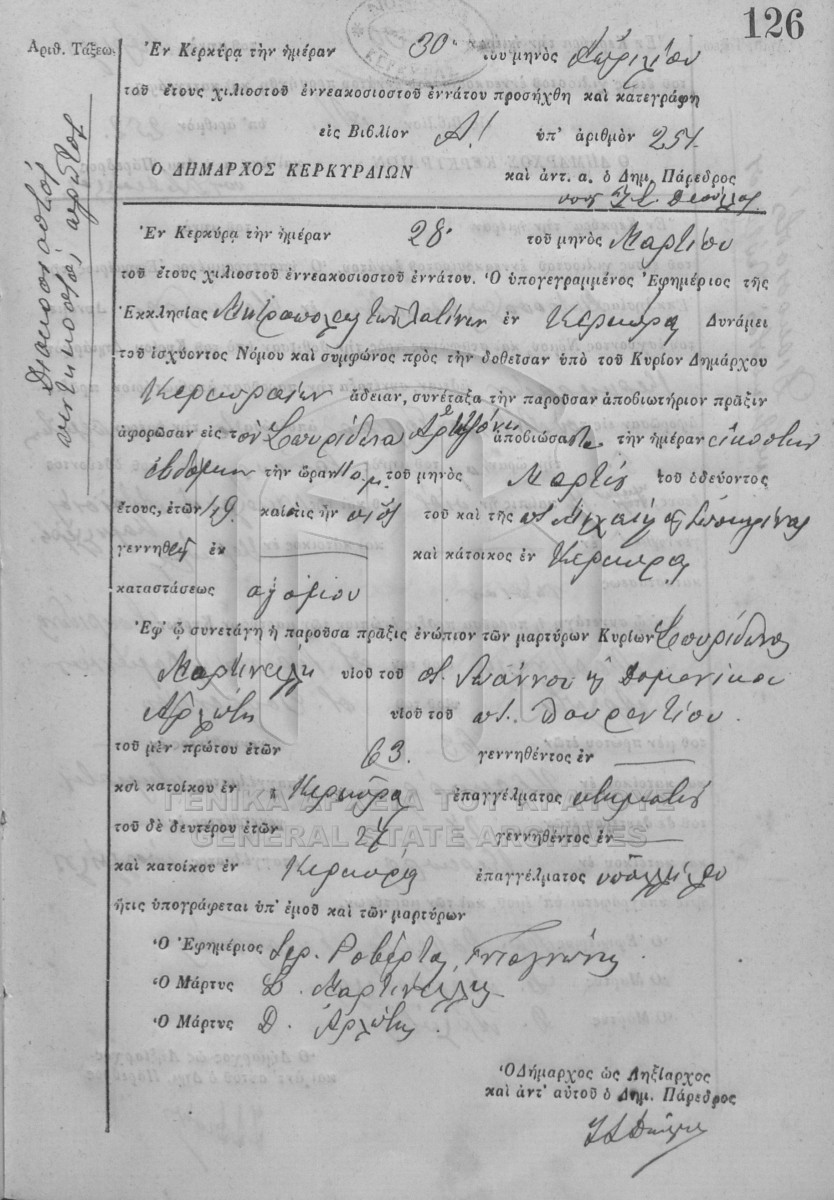 126
Ἀριθ. Τάξεως
Διακοσιοστός
πεντηκοστός πρῶτος
Ἐν Κερκύρᾳ τὴν ἡμέραν 30 τοῦ μηνὸς Ἀπριλίου
τοῦ ἔτους χιλιοστοῦ ἐννεακοσιοστοῦ ἐννάτου προσήχθη καὶ κατεγράφη
εἰς Βιβλίον Α! ὑπ' ἀριθμὸν 251.
Ο ΔΗΜΑΡΧΟΣ ΚΕΡΚΥΡΑΙΩΝ καὶ ἀντ. α. ὁ Δημ. Πάρεδρος
Ἐν Κερκύρᾳ τὴν ἡμέραν 28. τοῦ μηνὸς Μαρτίου
τοῦ ἔτους χιλιοστοῦ ἐννεακοσιοστοῦ ἐννάτου. Ὁ ὑπογεγραμμένος Ἐφημέριος τῆς
Ἐκκλησίας Μητροπόλεως τῶν Λατίνων ἐν Κερκύρᾳ Δυνάμει
τοῦ ἰσχύοντος Νόμου καὶ συμφώνος πρὸς τὴν δοθεῖσαν ὑπὸ τοῦ Κυρίου Δημάρχου
Κερκυραίων ἄδειαν, συνέταξα τὴν παροῦσαν ἀποβιωτήριον πρᾶξιν
ἀφορῶσαν εἰς τὸν Σπυρίδωνα ἀποβιώσαντα τὴν ἡμέραν εἰκοστὴν
ἑβδόμην τὴν ὥραν τοῦ μηνὸς Μαρτίου τοῦ ὁδεύοντος
ἔτους, ἐτῶν 19. καὶ ὅςτις ἦν υἱὸς τοῦ καὶ τῆς ποτ. Μιχαὴλ
γεννηθεὶς ἐκ καὶ κάτοικος ἐν Κερκύρᾳ
καταστάσεως ἀγάμου
Ἐφ' ᾧ συνετάγη ἡ παροῦσα πρᾶξις ἐνώπιον τῶν μαρτύρων Κυρίων Σπυρίδωνος
Μαρτινέλλη υἱοῦ τοῦ ποτ. Ἰωάννου καὶ Δομενίκου
Ἀρλώτη υἱοῦ τοῦ ποτ. Λαυρεντίου.
τοῦ μὲν πρώτου ἐτῶν 63. γεννηθέντος ἐν
καὶ κατοίκου ἐν Κερκύρᾳ ἐπαγγέλματος κτηματίου
τοῦ δὲ δευτέρου ἐτῶν 27 γεννηθέντος ἐν
καὶ κατοίκου ἐν Κερκύρᾳ ἐπαγγέλματος ὑπαλλήλου
ἥτις ὑπογράφεται ὑπ' ἐμοῦ καὶ τῶν μαρτύρων
Ὁ Ἐφημέριος Ἱερ. Ροβέρτος
Ὁ Μάρτυς Σ. Μαρτινέλλης
Ὁ Μάρτυς Δ. Ἀρλώτης
Ὁ Δήμαρχος ὡς Ληξίαρχος
καὶ ἀντ' αὐτοῦ ὁ Δημ. Πάρεδρος
ΓΕΝΙΚΑ ΑΡΧΕΙΑ ΤΟΥ ΚΡΑΤΟΥΣ
GENERAL STATE ARCHIVES